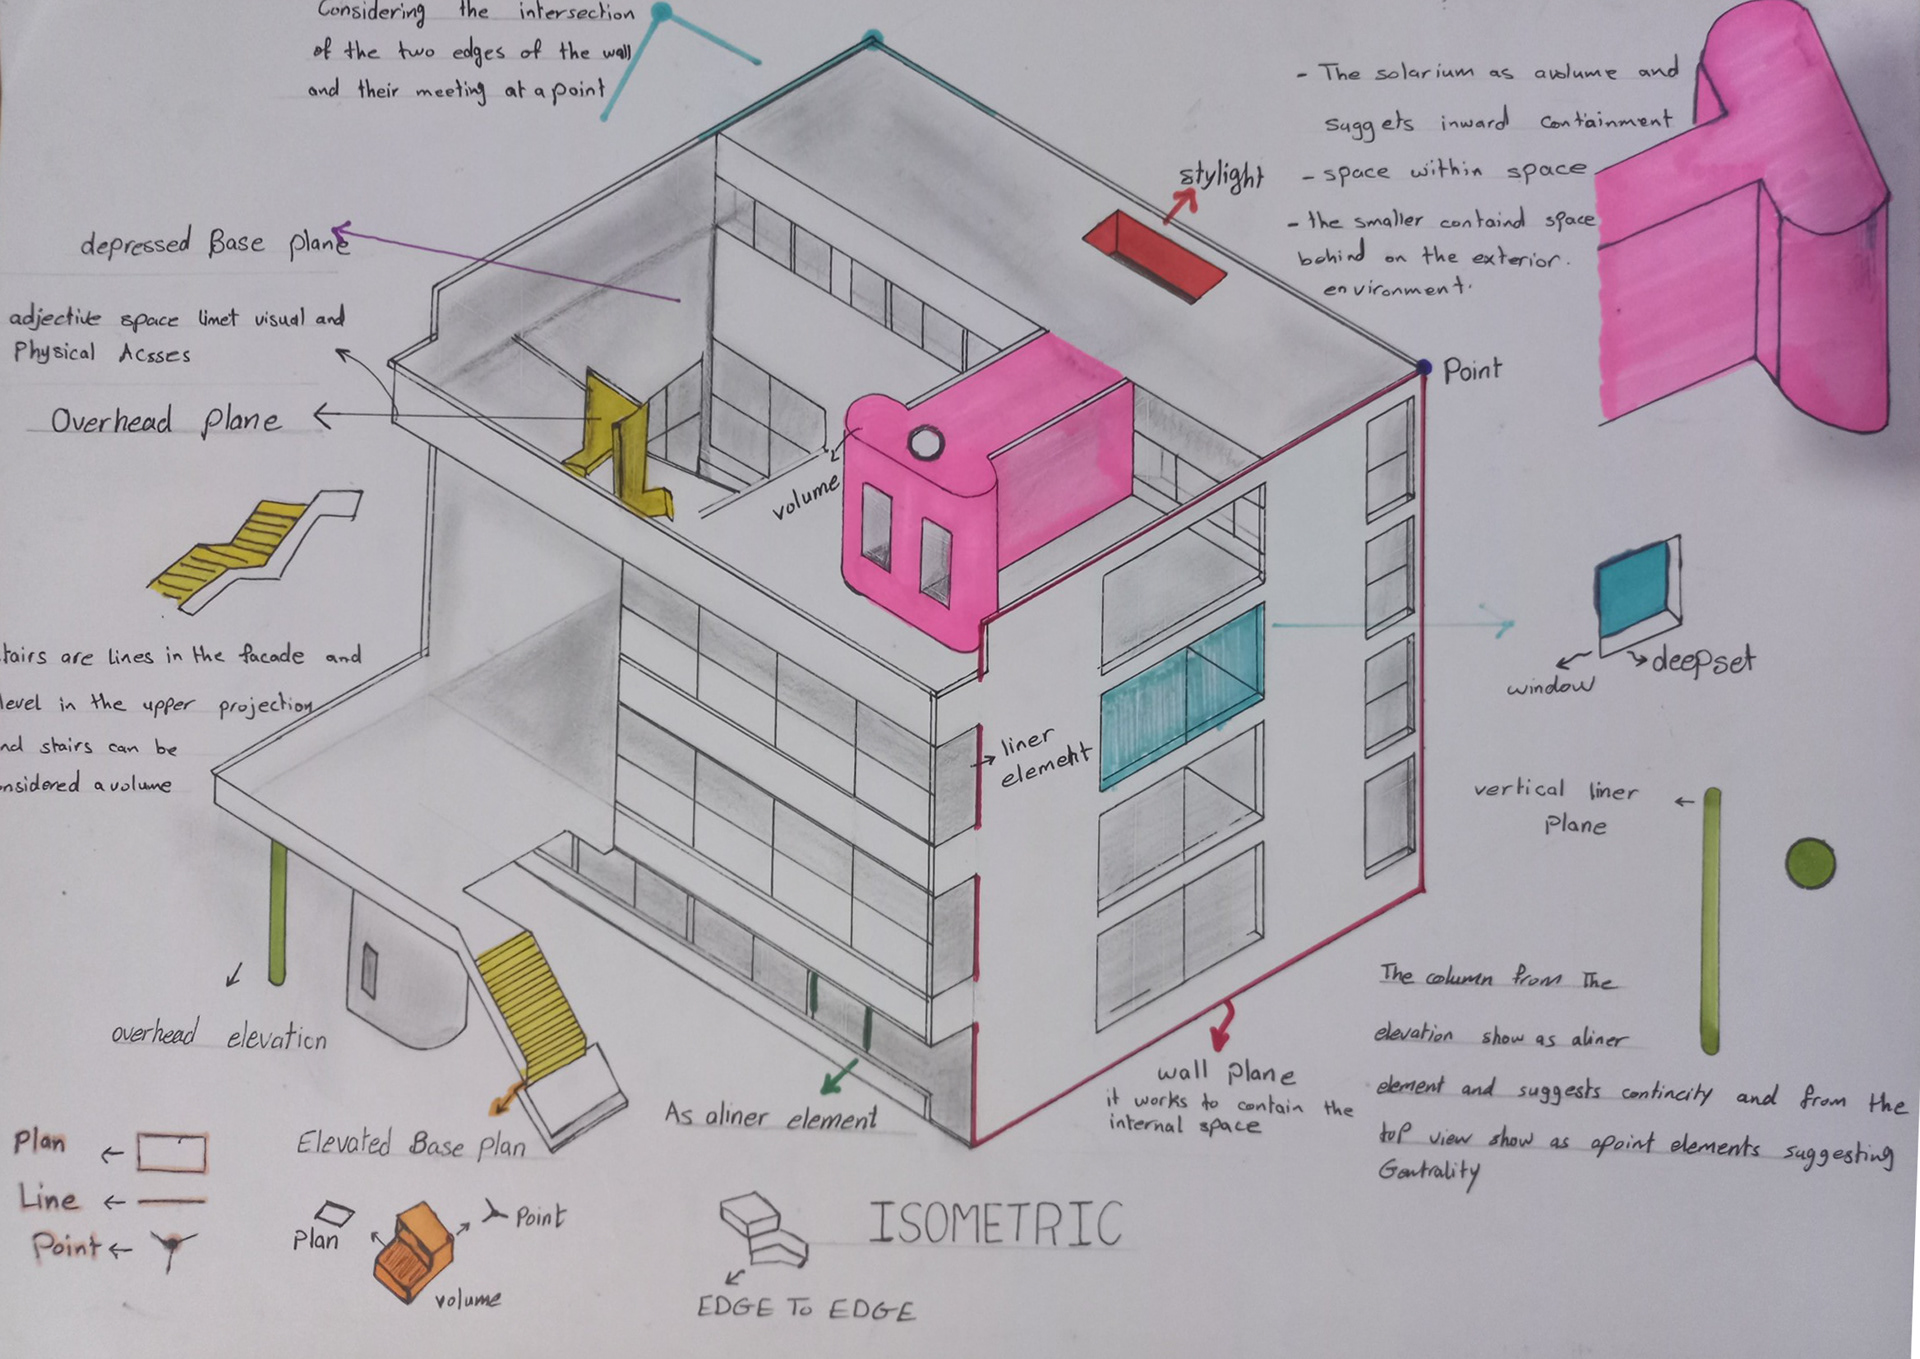 Considering the intersection
of the two edges of the wall
and their meeting at a point
- The solarium as avolume and
suggets inward containment
- space within space
- the smaller containd space
behind on the exterior.
environment.
stylight
depressed Base plane
adjective space limet visual and
Physical Acsses
Overhead plane
Point
volume
tairs are lines in the facade and
level in the upper projection
nd stairs can be
nsidered a volume
liner
element
window
deepset
vertical liner
plane
overhead elevation
The column from The
elevation show as aliner
element and suggests contincity and from the
top view show as apoint elements suggesting
Gentrality
wall plane
it works to contain the
internal space
As aliner element
Elevated Base plan
Plan
Line
Point
Plan
Point
volume
ISOMETRIC
EDGE TO EDGE